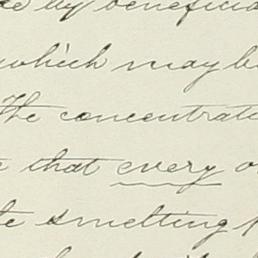 by beneficia
which may b
The concentrat
that every o
te smelting